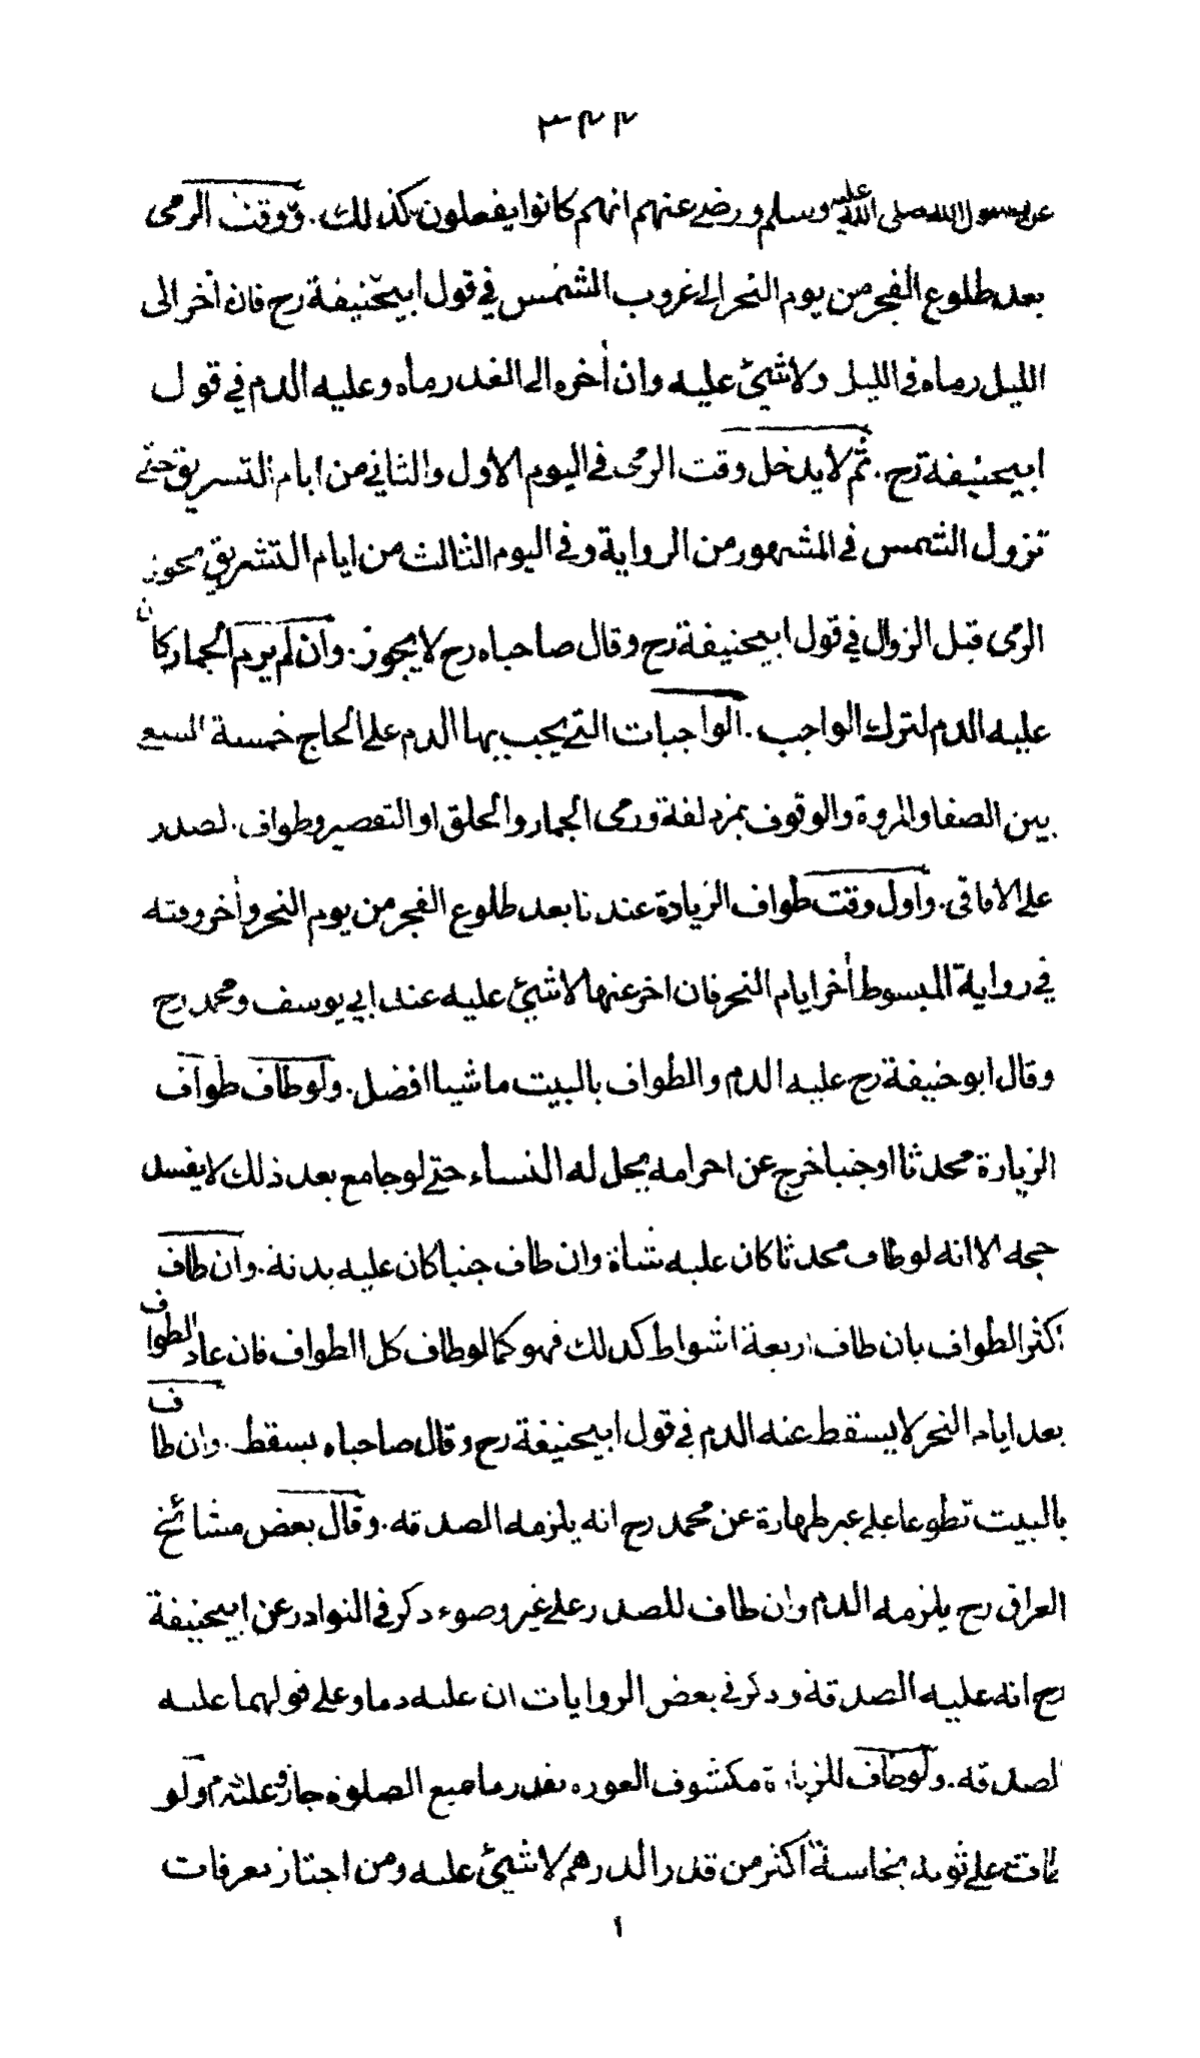 ٣٤٢
عن رسول الله صلى الله عليه وسلم ورضي عنهم انهم كانوا يفعلون كذلك . ووقت الرمى
بعد طلوع الفجر من يوم النحر الى غروب الشمس في قول ابيحنيفة رح فان أخر الى
الليل رماه في الليل ولا شيئ عليه وان أخره الى الغد رماه وعليه الدم في قول
ابيحنيفة رح . ثم لا يدخل وقت الرمى في اليوم الاول والثاني من ايام التسريق حتى
تزول الشمس في المشهور من الرواية وفي اليوم الثالث من ايام التشريق يجوز
الرمى قبل الزوال في قول ابيحنيفة رح وقال صاحباه رح لا يجوز . وان لم يرم الجمار كان
عليه الدم لترك الواجب . الواجبات التي يجب بها الدم على الحاج خمسة السعى
بين الصفا والمروة والوقوف بمزدلفة ورمى الجمار والحلق او التقصير وطواف الصدر
على الافاقى . واول وقت طواف الزيادة عندنا بعد طلوع الفجر من يوم النحر وأخر وقته
في رواية المبسوط أخر ايام النحر فان اخر عنها لا شيئ عليه عند ابي يوسف ومحمد رح
وقال ابو حنيفة رح عليه الدم والطواف بالبيت ماشيا افضل . ولو طاف طواف
الزيارة محدثا او جنبا خرج عن احرامه يحل له النساء حتى لو جامع بعد ذلك لا يفسد
حجه الا انه لو طاف محدثا كان عليه شاة وان طاف جنبا كان عليه بدنة . وان طاف
اكثر الطواف بان طاف اربعة اشواط كذلك فهو كما لو طاف كل الطواف فان عاد الطواف
بعد ايام النحر لا يسقط عنه الدم في قول ابيحنيفة رح وقال صاحباه يسقط . وان طاف
بالبيت تطوعا على غير طهارة عن محمد رح انه يلزمه الصدقه . وقال بعض مشائخ
العراق رح يلزمه الدم وان طاف للصدر على غير وضوء ذكر في النوادر عن ابيحنيفة
رح انه عليه الصدقة وذكر في بعض الروايات ان عليه دما وعلى قولهما عليه
الصدقه . ولو طاف للزيارة مكشوف العورة بقدر ما يمنع الصلوة جاز وعليه دم ولو
كانت على ثوبه نجاسة اكثر من قدر الدرهم لا شيئ عليه ومن اجتاز بعرفات
١